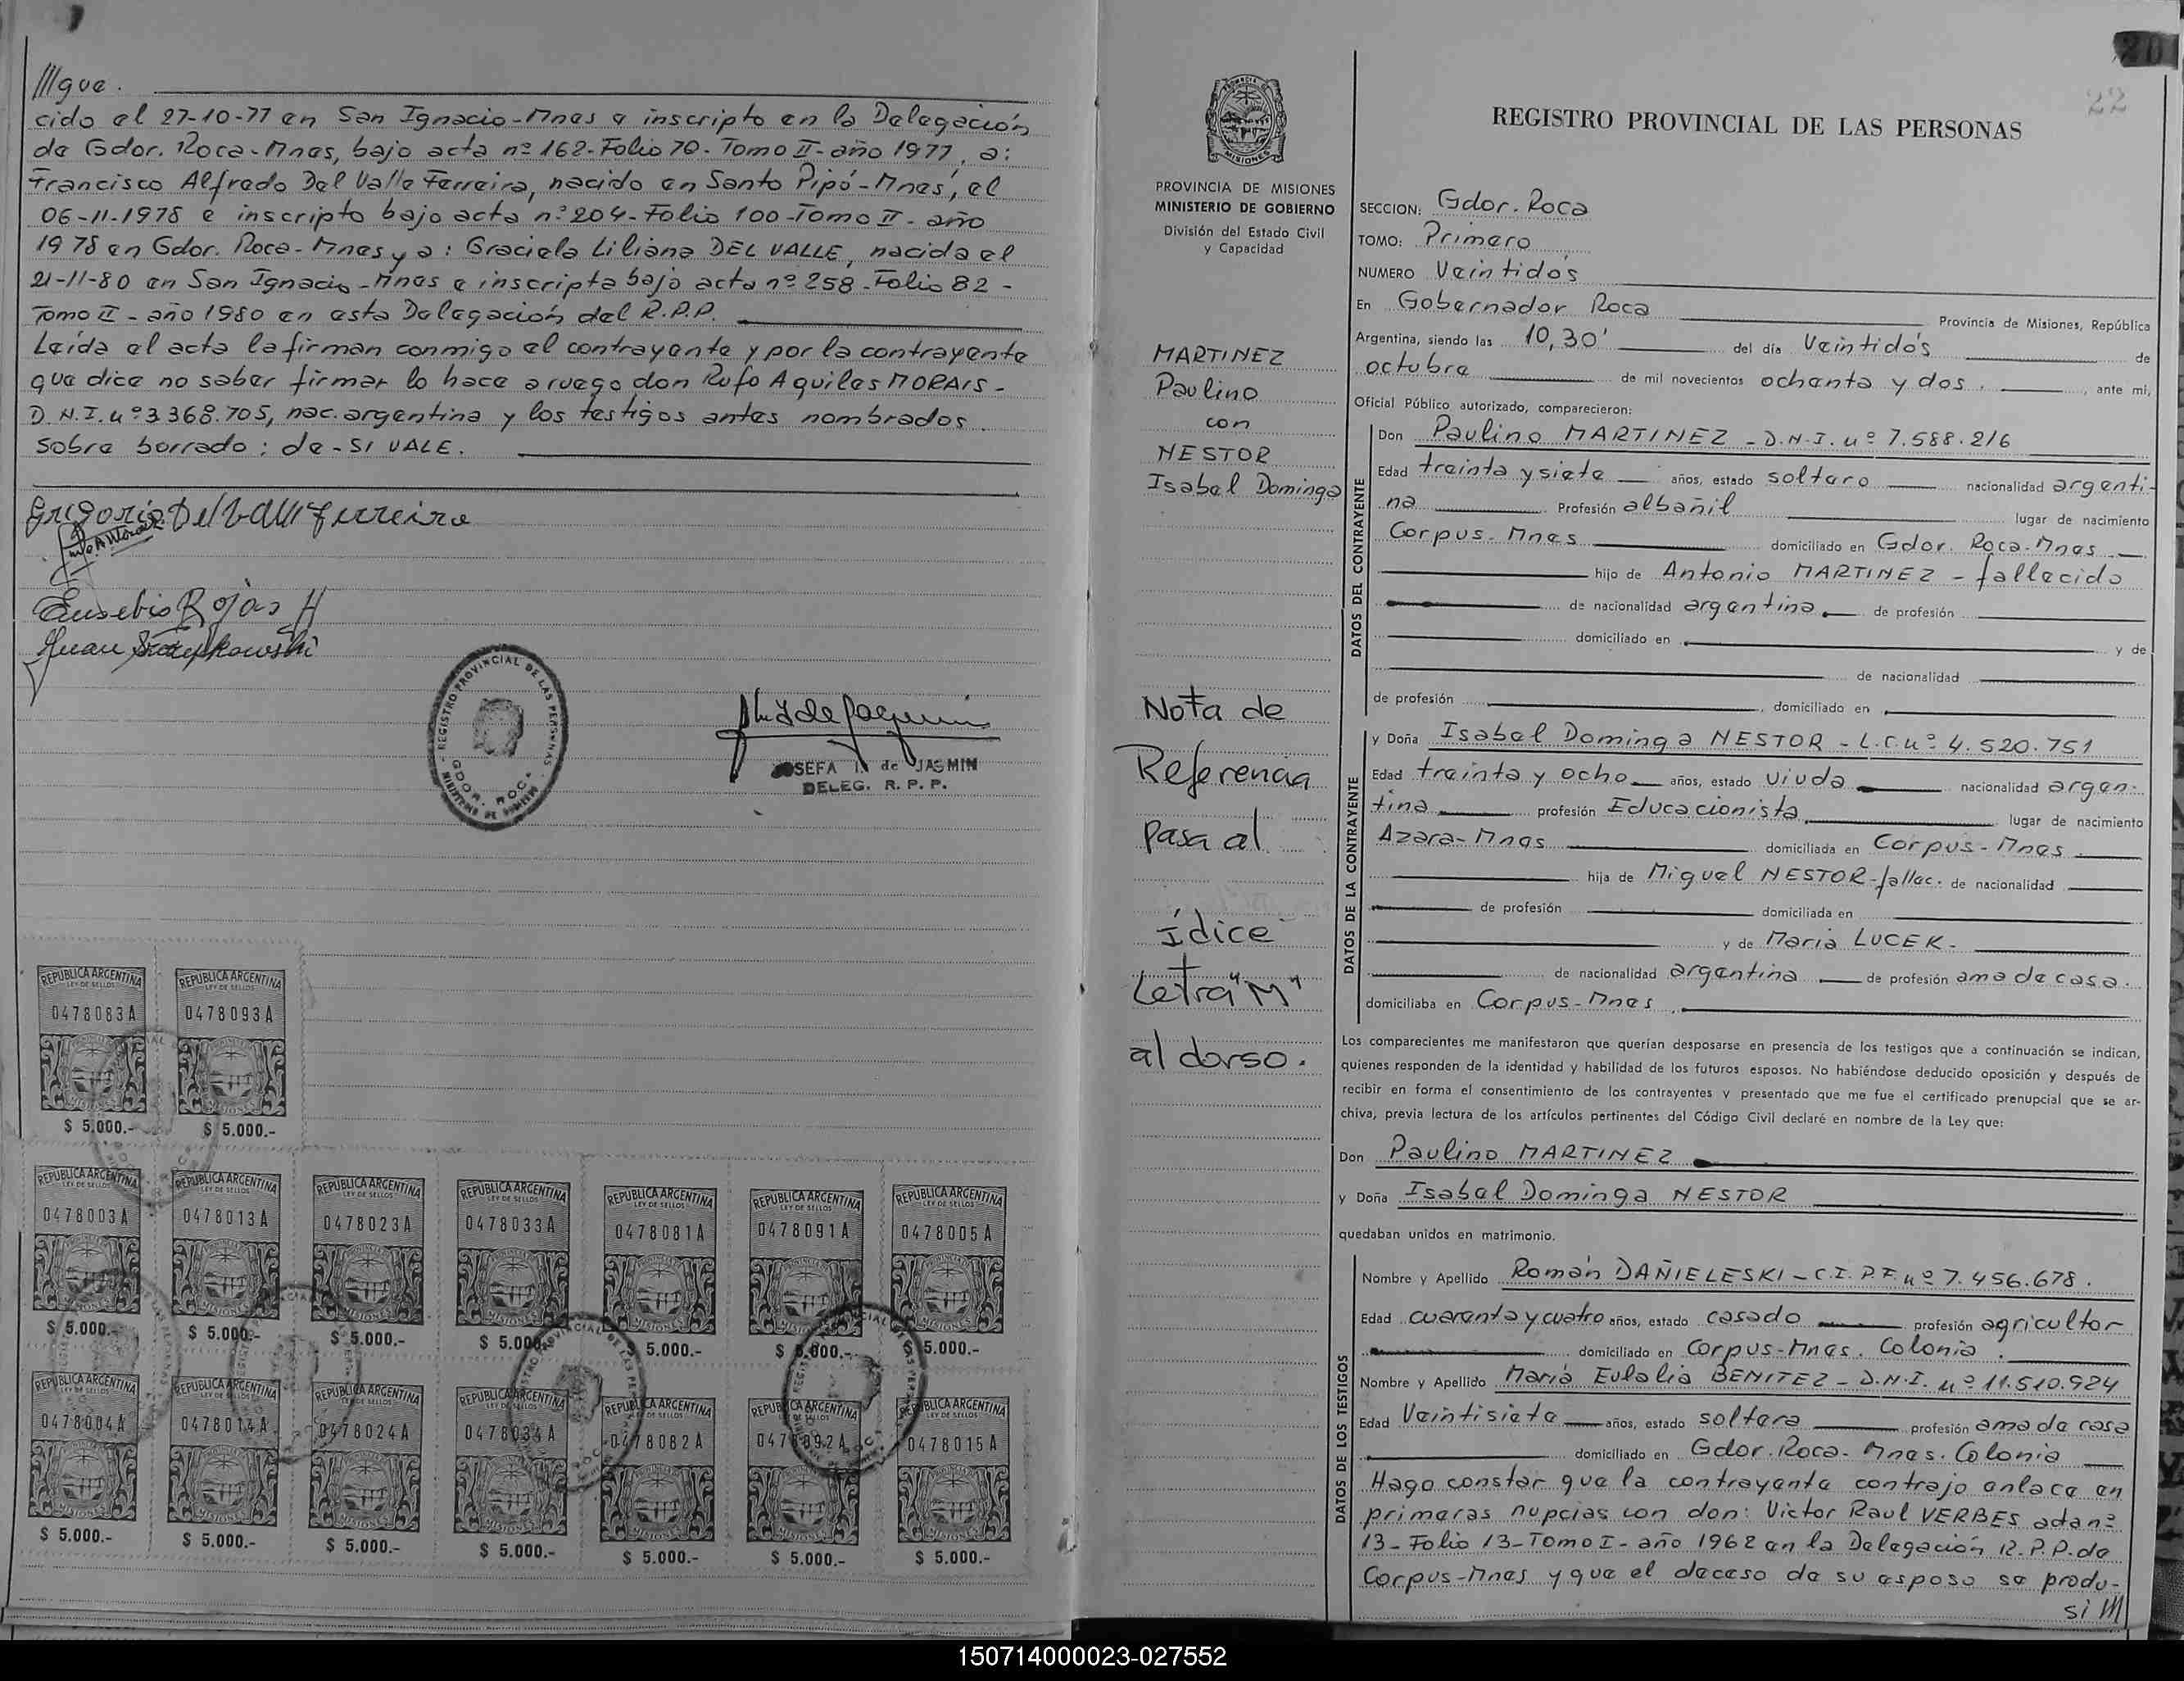 gue.
cido el 27-10-77 en San Ignacio-Mnes e inscripto en la Delegación
de Gdor. Roca-Mnes, bajo acta nº 162-Folio 70-Tomo II-año 1977, a:
Francisco Alfredo Del Valle Ferreira, nacido en Santo Pipó-Mnes, el
06-11-1978 e inscripto bajo acta nº 204-Folio 100-Tomo II-año
1978 en Gdor. Roca-Mnes y a: Graciela Liliana DEL VALLE, nacida el
21-11-80 en San Ignacio-Mnes e inscripta bajo acta nº 258-Folio 82-
Tomo II-año 1980 en esta Delegación del R.P.P.
Leída el acta la firman conmigo el contrayente y por la contrayente
que dice no saber firmar lo hace a ruego don Rufo Aquiles MORAIS-
D.N.I. nº 3.368.705, nac. argentina y los testigos antes nombrados.
Sobre borrado: de-SI VALE.
Gregorio Del Valle Ferreira
Eusebio Rojas
Juan
REGISTRO PROVINCIAL DE LAS PERSONAS
GDOR. ROCA
JOSEFA I. de JASMIN
DELEG. R. P. P.
REPUBLICA ARGENTINA REPUBLICA ARGENTINA
LEY DE SELLOS LEY DE SELLOS
0478083A 0478093A
MISIONES MISIONES
$ 5.000.- $ 5.000.-
REPUBLICA ARGENTINA REPUBLICA ARGENTINA REPUBLICA ARGENTINA REPUBLICA ARGENTINA REPUBLICA ARGENTINA REPUBLICA ARGENTINA REPUBLICA ARGENTINA
LEY DE SELLOS LEY DE SELLOS LEY DE SELLOS LEY DE SELLOS LEY DE SELLOS LEY DE SELLOS LEY DE SELLOS
0478003A 0478013A 0478023A 0478033A 0478081A 0478091A 0478005A
MISIONES MISIONES MISIONES MISIONES MISIONES MISIONES MISIONES
$ 5.000.- $ 5.000.- $ 5.000.- $ 5.000.- $ 5.000.- $ 5.000.- $ 5.000.-
REPUBLICA ARGENTINA REPUBLICA ARGENTINA REPUBLICA ARGENTINA REPUBLICA ARGENTINA REPUBLICA ARGENTINA REPUBLICA ARGENTINA REPUBLICA ARGENTINA
LEY DE SELLOS LEY DE SELLOS LEY DE SELLOS LEY DE SELLOS LEY DE SELLOS LEY DE SELLOS LEY DE SELLOS
0478004A 0478014A 0478024A 0478034A 0478082A 0478092A 0478015A
MISIONES MISIONES MISIONES MISIONES MISIONES MISIONES MISIONES
$ 5.000.- $ 5.000.- $ 5.000.- $ 5.000.- $ 5.000.- $ 5.000.- $ 5.000.-
PROVINCIA DE MISIONES
MINISTERIO DE GOBIERNO
División del Estado Civil
y Capacidad
MARTINEZ
Paulino
con
NESTOR
Isabel Dominga
Nota de
Referencia
pasa al
Ídice
Letra "M"
al dorso.
20
22
REGISTRO PROVINCIAL DE LAS PERSONAS
SECCION: Gdor. Roca
TOMO: Primero
NUMERO Veintidós
En Gobernador Roca Provincia de Misiones, República
Argentina, siendo las 10,30' del día Veintidós de
octubre de mil novecientos ochenta y dos., ante mi,
Oficial Público autorizado, comparecieron:
DATOS DEL CONTRAYENTE
Don Paulino MARTINEZ - D.N.I. nº 7.588.216
Edad treinta y siete años, estado soltero nacionalidad argenti-
na Profesión albañil lugar de nacimiento
Corpus-Mnes domiciliado en Gdor. Roca-Mnes.
hijo de Antonio MARTINEZ - fallecido
de nacionalidad argentina de profesión
domiciliado en y de
de nacionalidad
de profesión , domiciliado en
DATOS DE LA CONTRAYENTE
y Doña Isabel Dominga NESTOR - L.C. nº 4.520.751
Edad treinta y ocho años, estado viuda nacionalidad argen-
tina profesión Educacionista lugar de nacimiento
Azara-Mnes domiciliada en Corpus-Mnes
hija de Miguel NESTOR-fallec. de nacionalidad
de profesión domiciliada en
y de Maria LUCEK-
de nacionalidad argentina de profesión ama de casa.
domiciliaba en Corpus-Mnes
Los comparecientes me manifestaron que querían desposarse en presencia de los testigos que a continuación se indican,
quienes responden de la identidad y habilidad de los futuros esposos. No habiéndose deducido oposición y después de
recibir en forma el consentimiento de los contrayentes y presentado que me fue el certificado prenupcial que se ar-
chiva, previa lectura de los artículos pertinentes del Código Civil declaré en nombre de la Ley que:
Don Paulino MARTINEZ
y Doña Isabel Dominga NESTOR
quedaban unidos en matrimonio.
DATOS DE LOS TESTIGOS
Nombre y Apellido Román DAÑIELESKI - C.I. P.F. nº 7.456.678.
Edad cuarenta y cuatro años, estado casado profesión agricultor
domiciliado en Corpus-Mnes. Colonia.
Nombre y Apellido María Eulalia BENITEZ - D.N.I. nº 11.510.924
Edad Veintisiete años, estado soltera profesión ama de casa
domiciliado en Gdor. Roca-Mnes. Colonia
Hago constar que la contrayente contrajo enlace en
primeras nupcias con don: Victor Raul VERBES acta nº
13-Folio 13-Tomo I-año 1962 en la Delegación R.P.P. de
Corpus-Mnes y que el deceso de su esposo se produ-
si
150714000023-027552